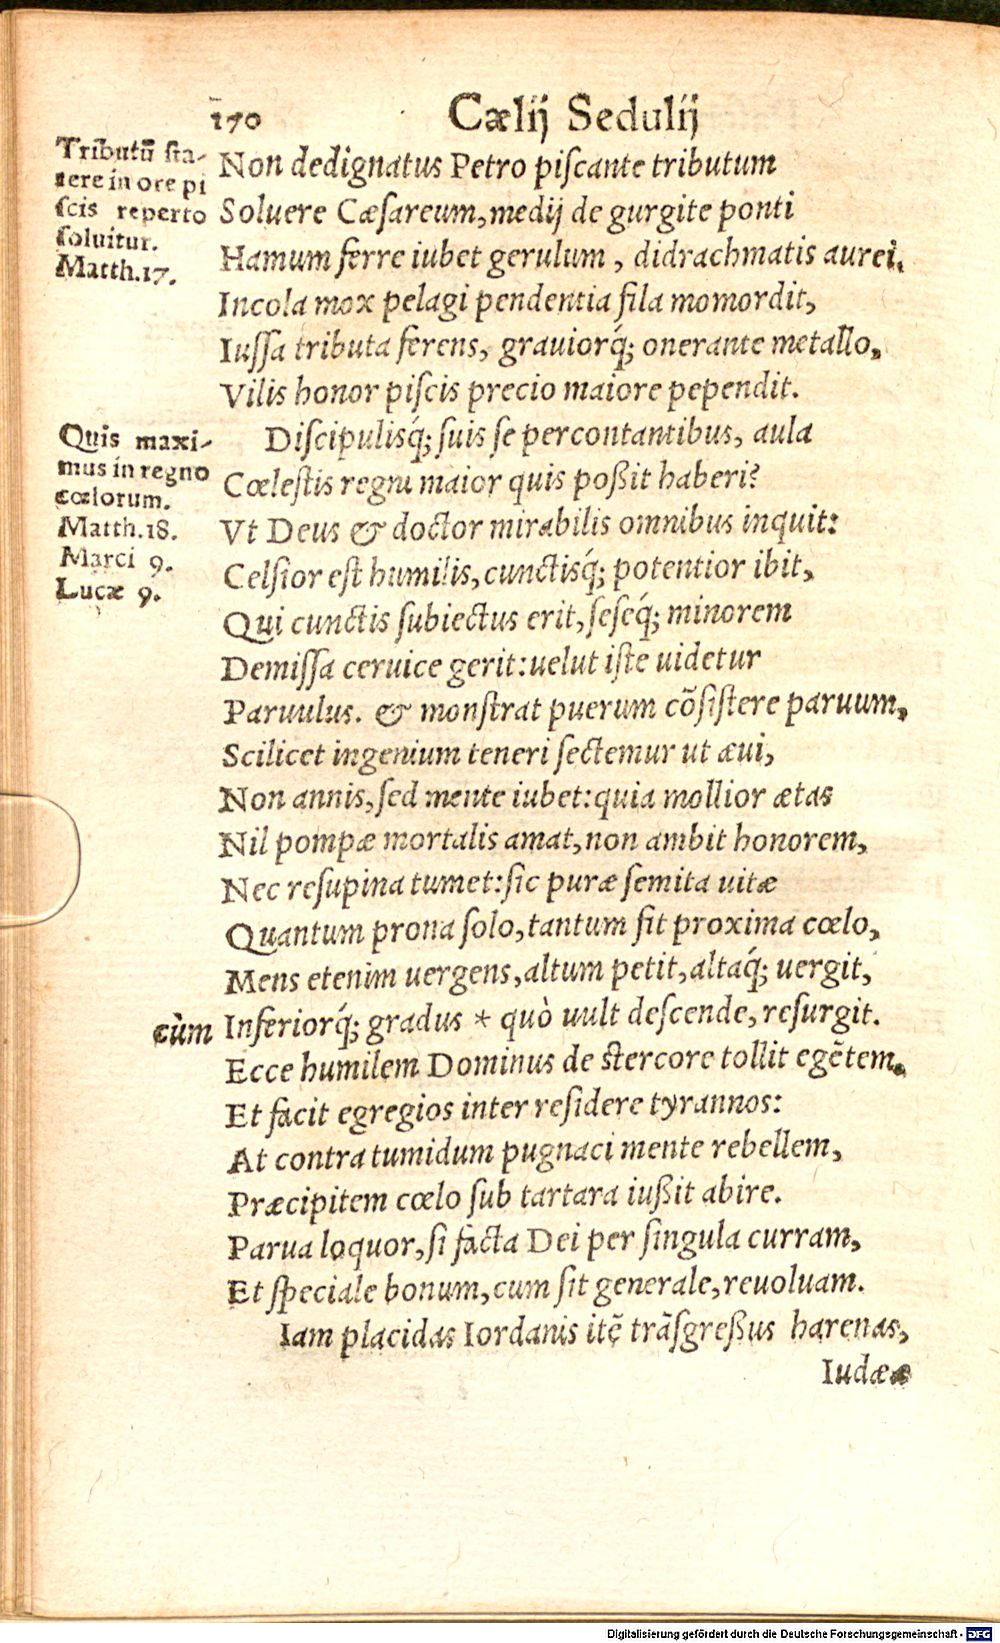 170
Cælij Sedulij
Tributũ sta-
tere in ore pi
scis reperto
soluitur.
Matth.17.
Non dedignatus Petro piscante tributum
Soluere Cæsareum, medij de gurgite ponti
Hamum ferre iubet gerulum, didrachmatis aurei.
Incola mox pelagi pendentia fila momordit,
Iussa tributa ferens, grauiorq́; onerante metallo,
Vilis honor piscis precio maiore pependit.
Quis maxi-
mus in regno
cœlorum.
Matth.18.
Marci 9.
Lucæ 9.
Discipulisq́; suis se percontantibus, aula
Cœlestis regni maior quis poßit haberi?
Vt Deus & doctor mirabilis omnibus inquit:
Celsior est humilis, cunctisq́; potentior ibit,
Qui cunctis subiectus erit, seseq́; minorem
Demissa ceruice gerit: uelut iste uidetur
Paruulus. & monstrat puerum cõsistere paruum,
Scilicet ingenium teneri sectemur ut æui,
Non annis, sed mente iubet: quia mollior ætas
Nil pompæ mortalis amat, non ambit honorem,
Nec resupina tumet: sic puræ semita uitæ
Quantum prona solo, tantum fit proxima cœlo,
Mens etenim uergens, altum petit, altaq́; uergit,
cùm Inferiorq́; gradus * quò uult descende, resurgit.
Ecce humilem Dominus de stercore tollit egẽtem.
Et facit egregios inter residere tyrannos:
At contra tumidum pugnaci mente rebellem,
Præcipitem cœlo sub tartara iußit abire.
Parua loquor, si facta Dei per singula curram,
Et speciale bonum, cum sit generale, reuoluam.
Iam placidas Iordanis itẽ trãsgreßus harenas,
Iudææ
Digitalisierung gefördert durch die Deutsche Forschungsgemeinschaft - DFG